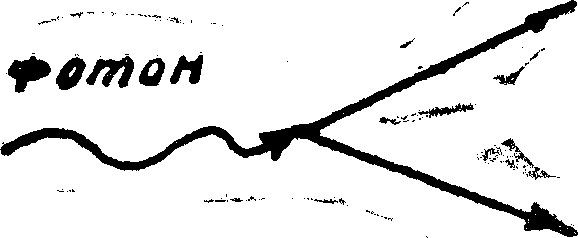 фотон